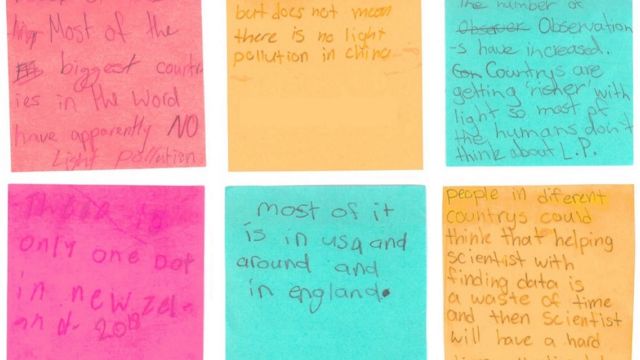 Most of the
biggest countr
ies in the Word
have apparently NO
Light pollution
but does not mean
there is no light
pollution in china
The number of
Observation
-s have increased.
Countrys are
getting 'risher' with
light so most pf
the humans don't
think about L.P.
There is
only one dot
in newzel-
and-
most of it
is in usa and
around and
in england.
people in diferent
countrys could
think that helping
scientist with
finding data is
a waste of time
and then scientist
will have a hard